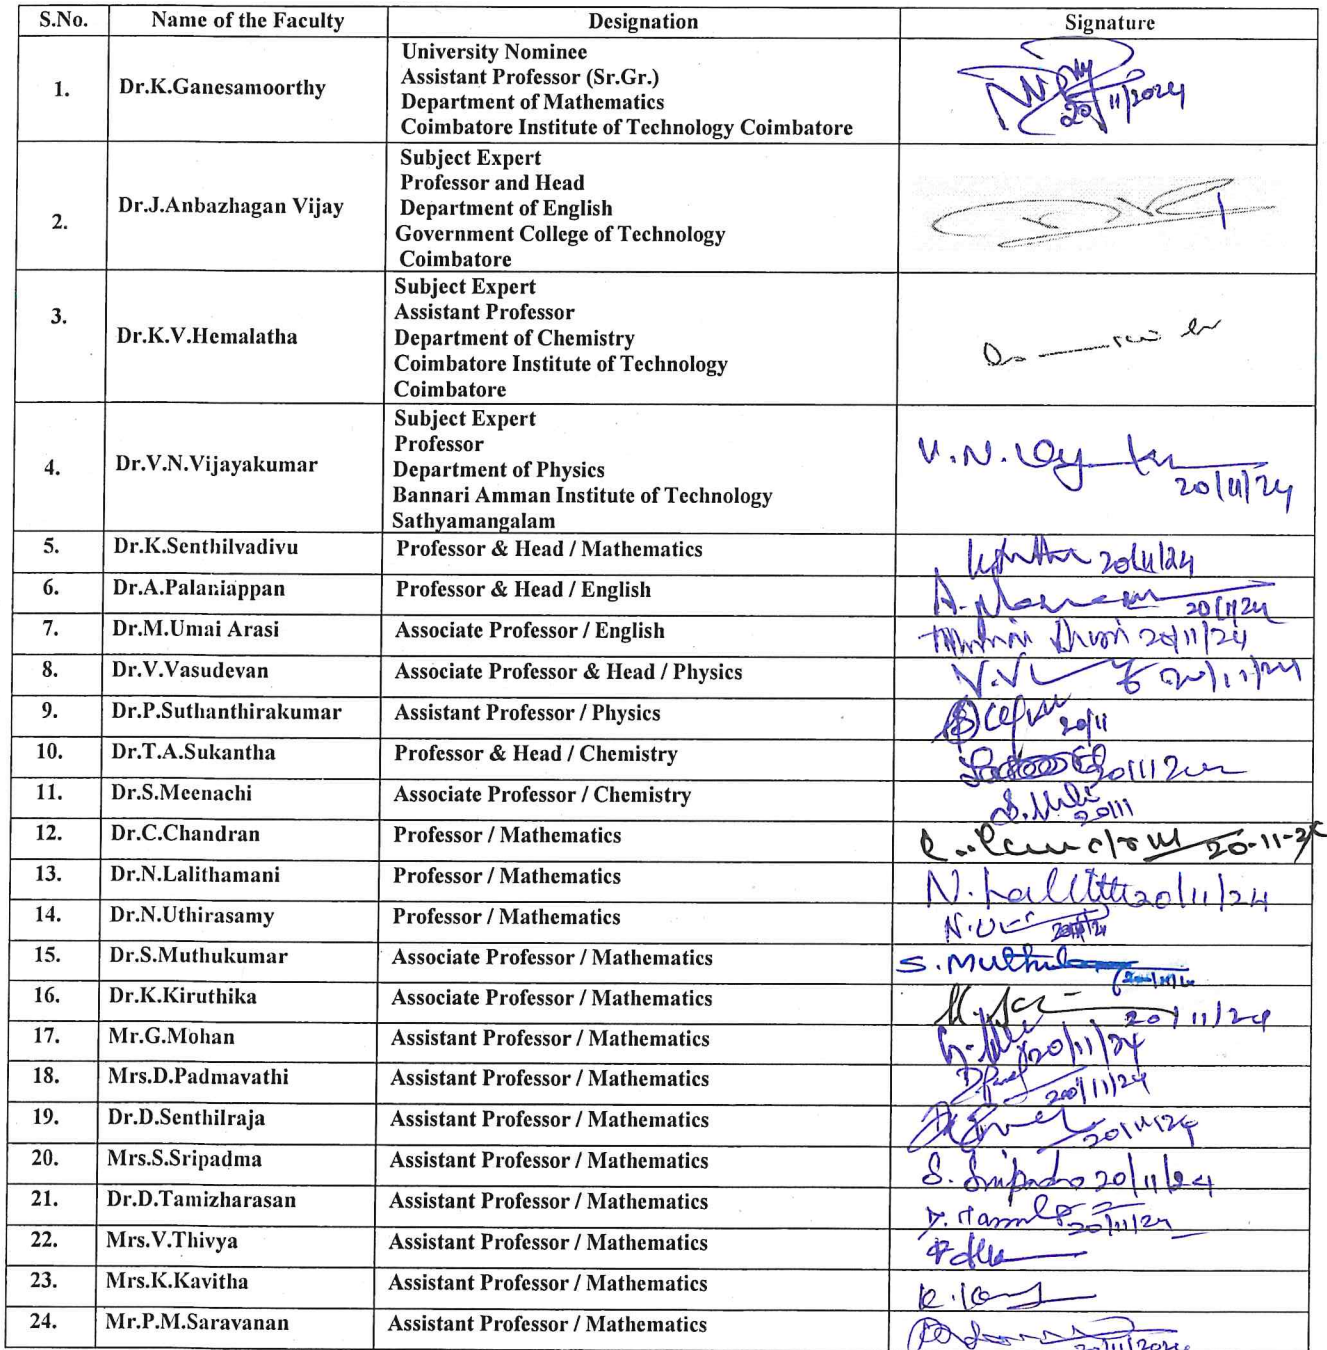 S.No. Name of the Faculty Designation Signature
1. Dr.K.Ganesamoorthy
University Nominee
Assistant Professor (Sr.Gr.)
Department of Mathematics
Coimbatore Institute of Technology Coimbatore
20/11/2024
2. Dr.J.Anbazhagan Vijay
Subject Expert
Professor and Head
Department of English
Government College of Technology
Coimbatore
3. Dr.K.V.Hemalatha
Subject Expert
Assistant Professor
Department of Chemistry
Coimbatore Institute of Technology
Coimbatore
4. Dr.V.N.Vijayakumar
Subject Expert
Professor
Department of Physics
Bannari Amman Institute of Technology
Sathyamangalam
V.N.
20/11/24
5. Dr.K.Senthilvadivu Professor & Head / Mathematics 20/11/24
6. Dr.A.Palaniappan Professor & Head / English 20/11/24
7. Dr.M.Umai Arasi Associate Professor / English 20/11/24
8. Dr.V.Vasudevan Associate Professor & Head / Physics 20/11/24
9. Dr.P.Suthanthirakumar Assistant Professor / Physics 20/11
10. Dr.T.A.Sukantha Professor & Head / Chemistry
11. Dr.S.Meenachi Associate Professor / Chemistry 20/11
12. Dr.C.Chandran Professor / Mathematics
13. Dr.N.Lalithamani Professor / Mathematics 20/11/24
14. Dr.N.Uthirasamy Professor / Mathematics
15. Dr.S.Muthukumar Associate Professor / Mathematics
16. Dr.K.Kiruthika Associate Professor / Mathematics 20/11/24
17. Mr.G.Mohan Assistant Professor / Mathematics 20/11/24
18. Mrs.D.Padmavathi Assistant Professor / Mathematics 20/11/24
19. Dr.D.Senthilraja Assistant Professor / Mathematics 20/11/24
20. Mrs.S.Sripadma Assistant Professor / Mathematics 20/11/24
21. Dr.D.Tamizharasan Assistant Professor / Mathematics 20/11/24
22. Mrs.V.Thivya Assistant Professor / Mathematics
23. Mrs.K.Kavitha Assistant Professor / Mathematics
24. Mr.P.M.Saravanan Assistant Professor / Mathematics